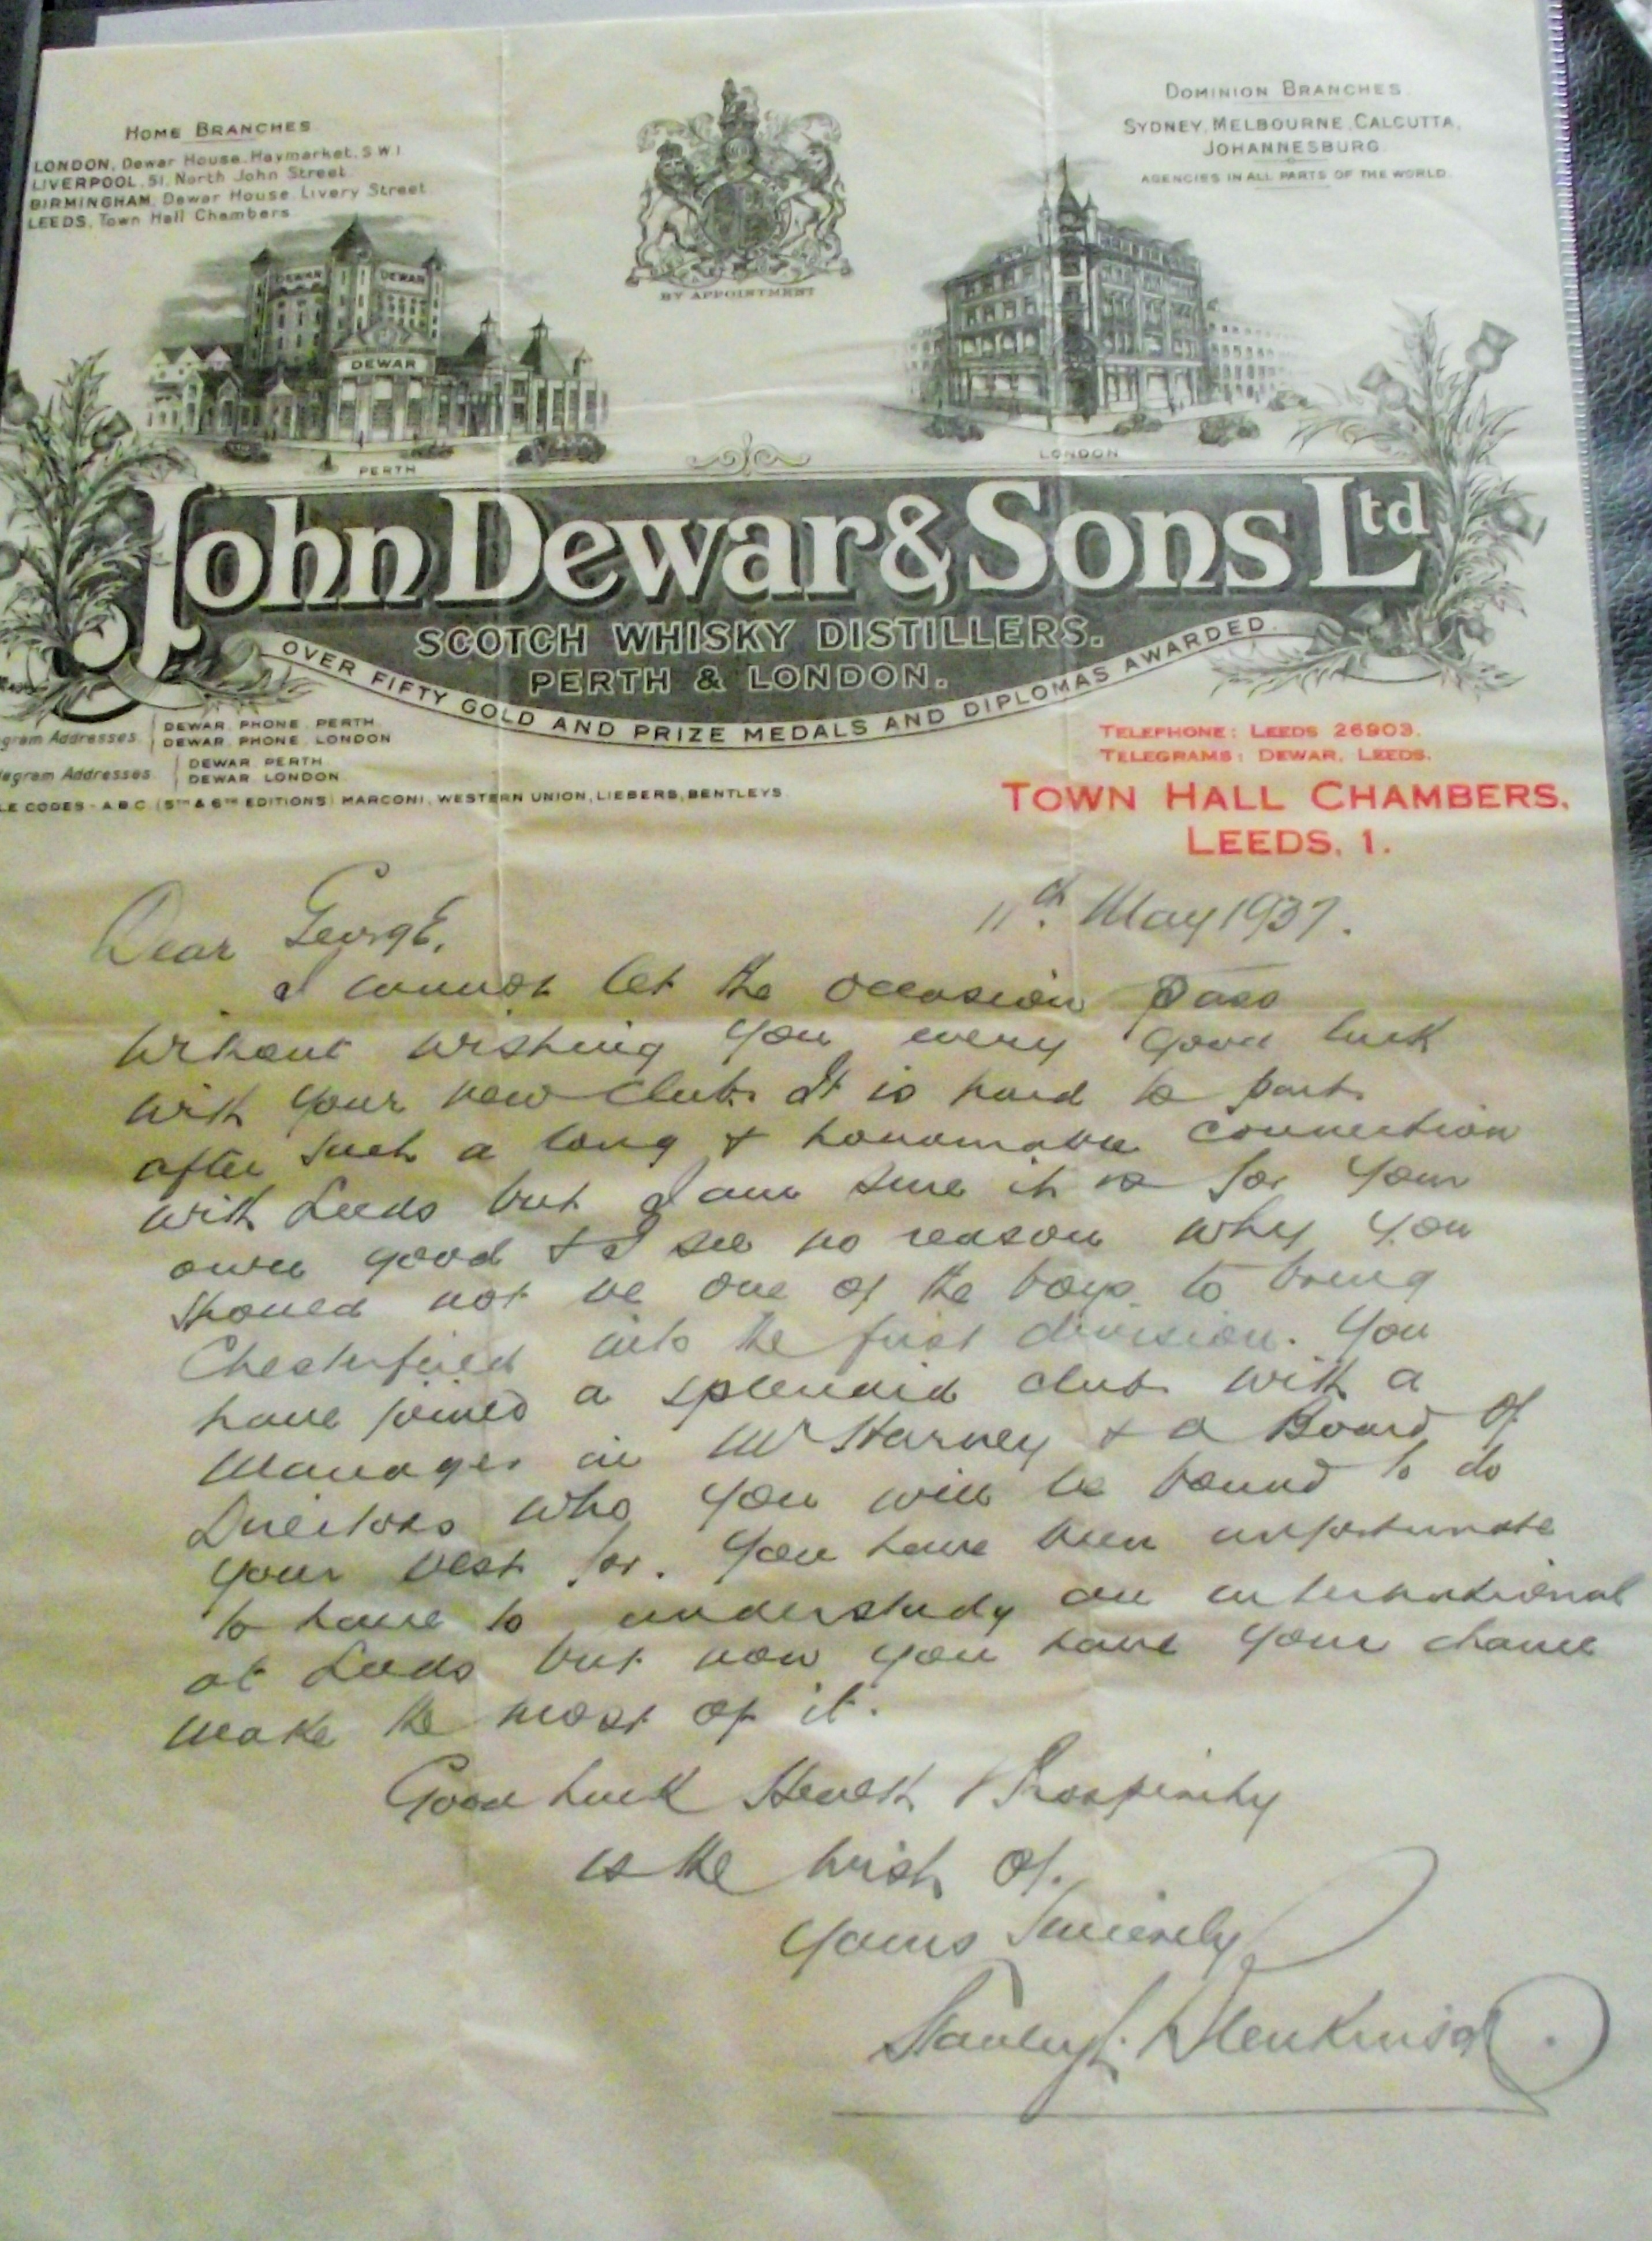 HOME BRANCHES
LONDON, Dewar House, Haymarket, S.W.1
LIVERPOOL, 51, North John Street
BIRMINGHAM, Dewar House Livery Street
LEEDS, Town Hall Chambers
DOMINION BRANCHES
SYDNEY, MELBOURNE, CALCUTTA,
JOHANNESBURG
AGENCIES IN ALL PARTS OF THE WORLD
BY APPOINTMENT
DEWAR DEWAR
DEWAR
PERTH
LONDON
John Dewar & Sons Ltd
SCOTCH WHISKY DISTILLERS.
PERTH & LONDON.
OVER FIFTY GOLD AND PRIZE MEDALS AND DIPLOMAS AWARDED.
gram Addresses
DEWAR PHONE PERTH
DEWAR PHONE LONDON
legram Addresses
DEWAR PERTH
DEWAR LONDON
LE CODES - A.B.C. (5TH & 6TH EDITIONS) MARCONI, WESTERN UNION, LIEBERS, BENTLEYS
TELEPHONE: LEEDS 26903.
TELEGRAMS: DEWAR, LEEDS.
TOWN HALL CHAMBERS,
LEEDS, 1.
11th May 1937.
Dear George,
I cannot let the occasion pass
without wishing you every good luck
with your new club. It is hard to part
after such a long & honourable connection
with Leeds but I am sure it is for your
own good & I see no reason why you
should not be one of the boys to bring
Chesterfield into the first division. You
have joined a splendid club with a
Manager in Mr Harvey & a Board of
Directors who you will be bound to do
your best for. You have been unfortunate
to have to understudy an international
at Leeds but now you have your chance
make the most of it.
Good luck Health & Prosperity
is the wish of.
Yours Sincerely
Stanley Blenkinsop.